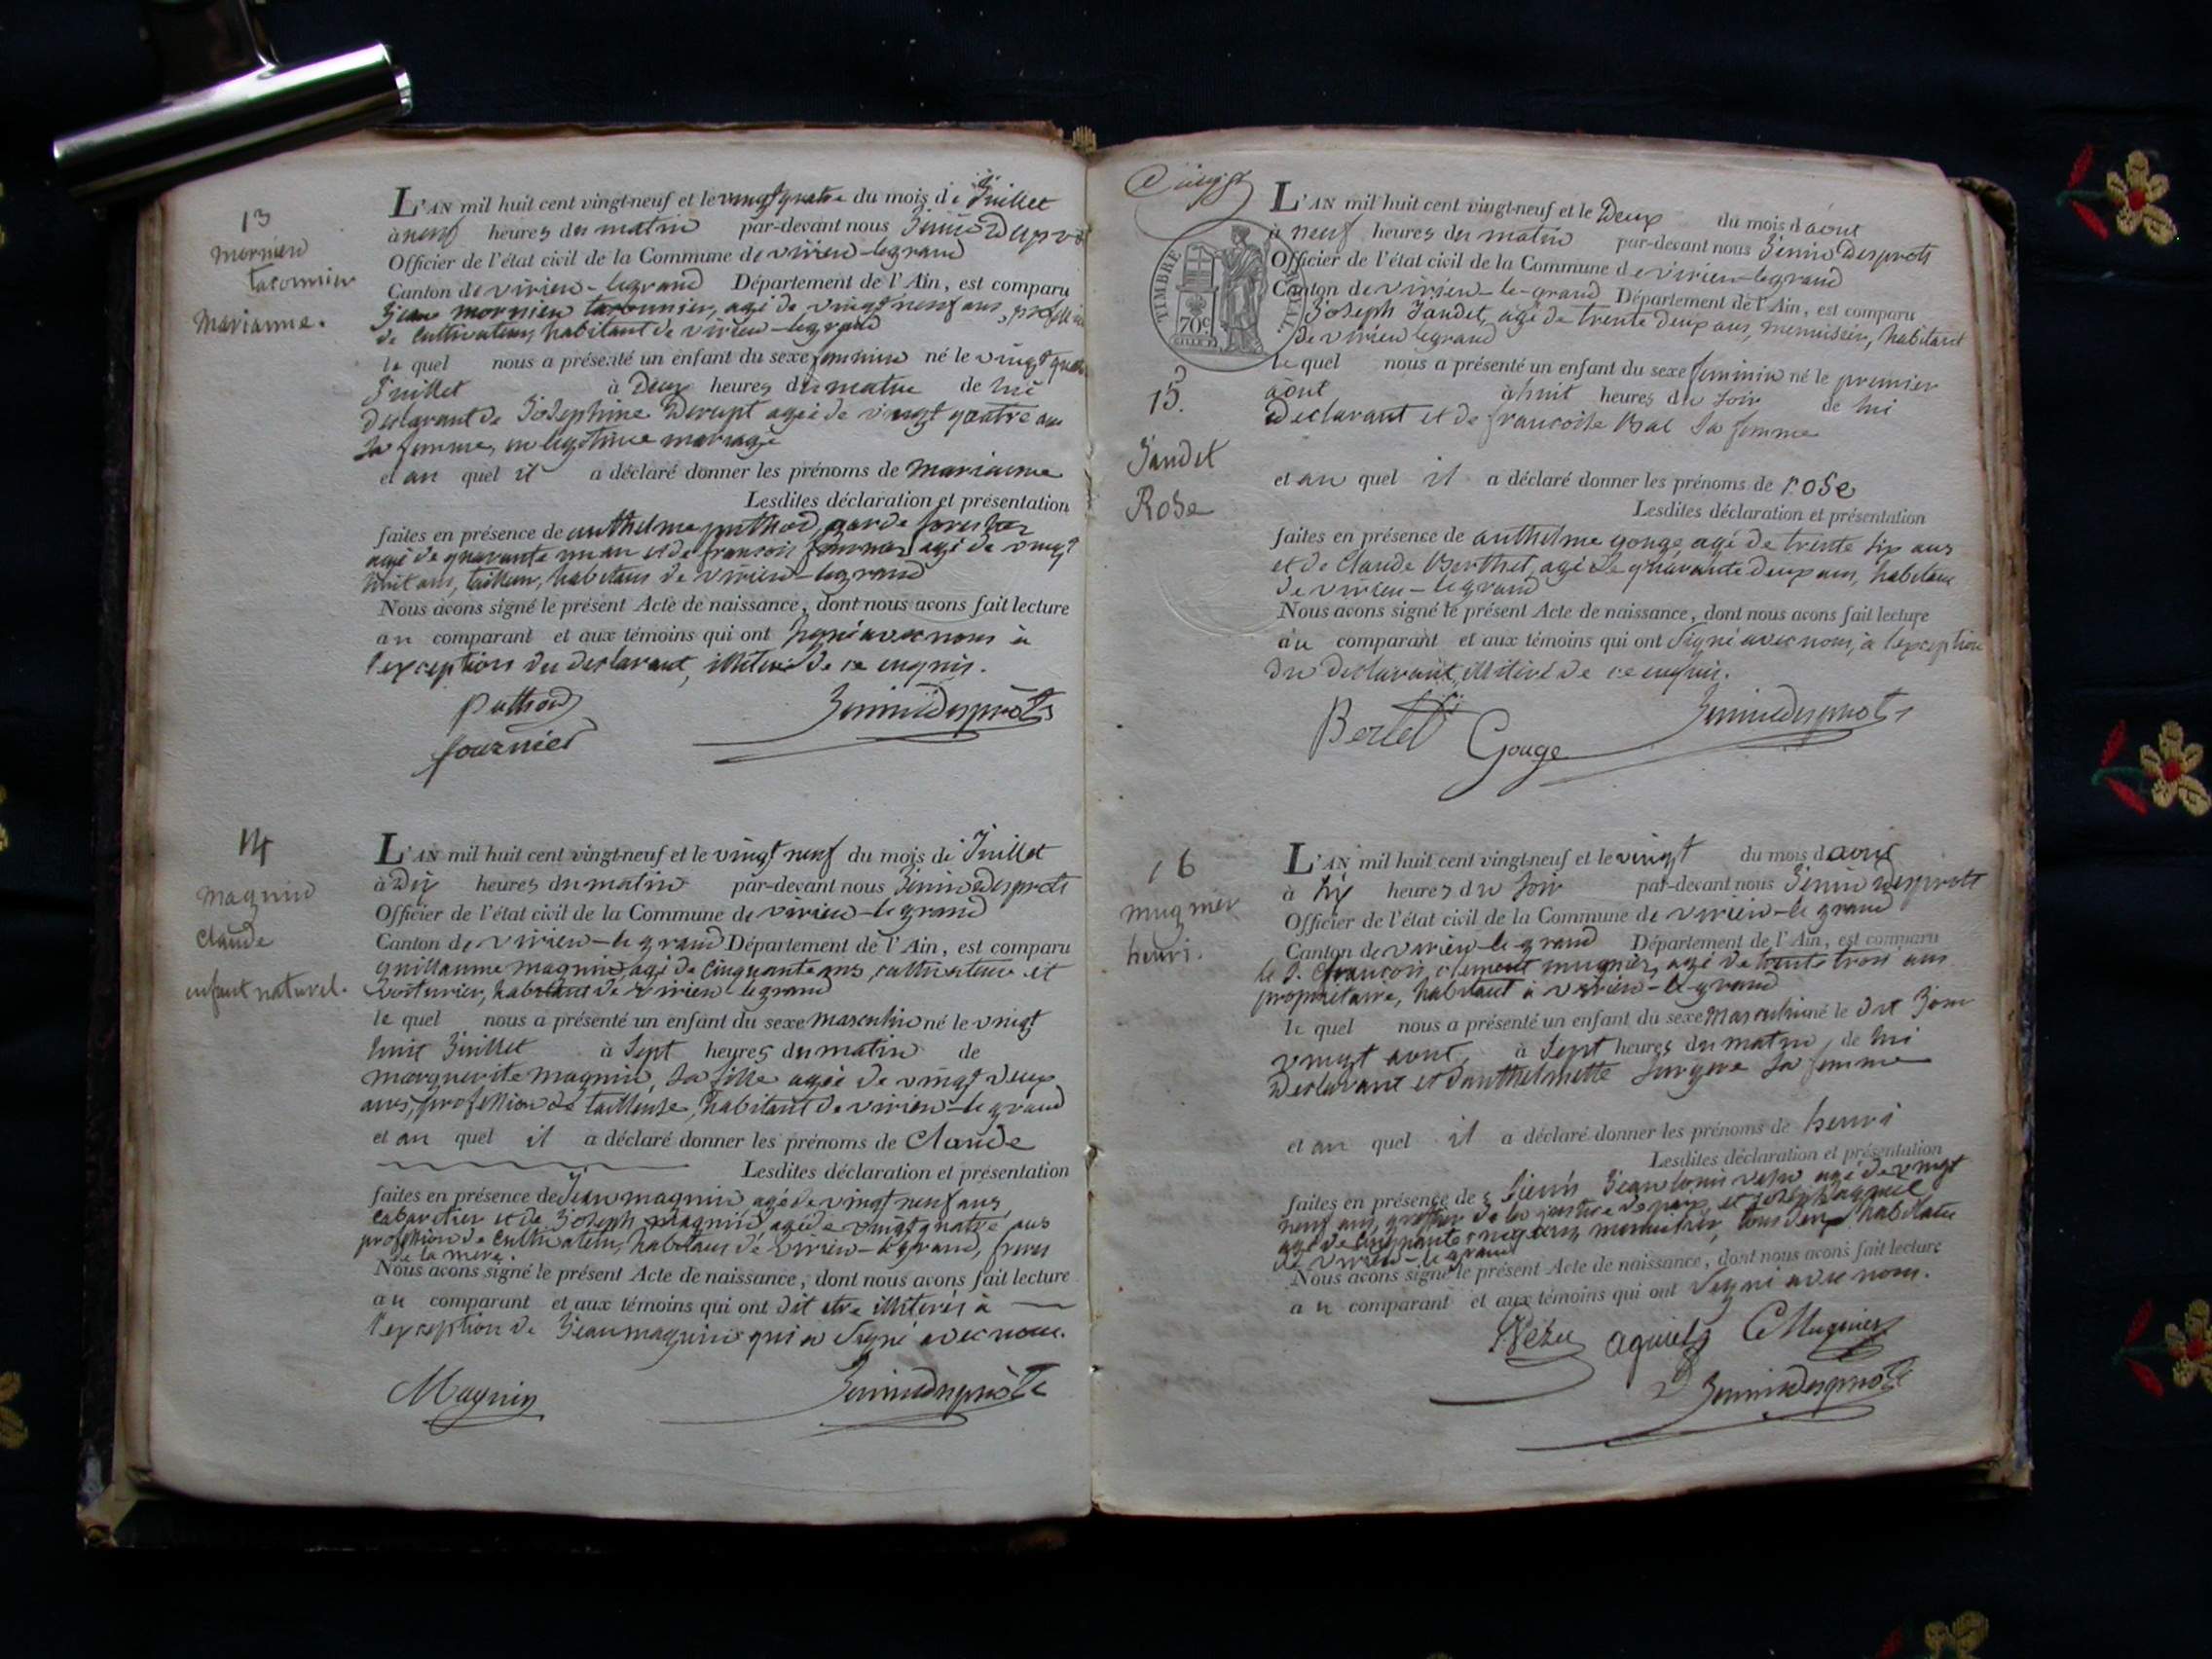 13
mornieu
tacounier
Marianne.
L'AN mil huit cent vingt-neuf et le vingt quatre du mois de Juillet
à neuf heures du matin par-devant nous Jenin Desprots
Officier de l'état civil de la Commune de virieu-legrand
Canton de virieu-legrand Département de l'Ain, est comparu
Jean mornieu tacounier, agé de vingt neuf ans, profession
de cultivateur, habitant de virieu-legrand
le quel nous a présenté un enfant du sexe feminin né le vingt quatre
Juillet à Deux heures du matin de lui
declarant de Josephine Derupt agée de vingt quatre ans
sa femme, en legitime mariage
et au quel il a déclaré donner les prénoms de marianne
Lesdites déclaration et présentation
faites en présence de anthelme puthod, garde forestier
agé de quarante un an et de francois fournier agé de vingt
huit ans, tailleur, habitans de virieu-legrand
Nous avons signé le présent Acte de naissance, dont nous avons fait lecture
au comparant et aux témoins qui ont signé avec nous à
l'exception du declarant, illiteré de ce enquis.
Puthod
fournier
Jenin Desprots
14
magnin
claude
enfant naturel.
L'AN mil huit cent vingt-neuf et le vingt neuf du mois de Juillet
à Dix heures du matin par-devant nous Jenin Desprots
Officier de l'état civil de la Commune de virieu-le grand
Canton de virieu-le grand Département de l'Ain, est comparu
guillaume magnin, agé de cinquante ans, cultivateur et
voiturier, habitant de virieu-le grand
le quel nous a présenté un enfant du sexe masculin né le vingt
huit Juillet à Sept heures du matin de
marguerite magnin, sa fille agée de vingt deux
ans, profession de tailleuse, habitant de virieu-le grand
et au quel il a déclaré donner les prénoms de Claude
Lesdites déclaration et présentation
faites en présence de Jean magnin, agé de vingt neuf ans,
cabaretier et de Joseph magnin agé de vingt quatre ans
profession de cultivateur, habitans de virieu-le grand, freres
de la mere.
Nous avons signé le présent Acte de naissance, dont nous avons fait lecture
au comparant et aux témoins qui ont dit etre illiterés à
l'exception de Jean magnin qui a signé avec nous.
Magnin
Jenin Desprots
TIMBRE
70c
15.
Jandet
Rose
L'AN mil huit cent vingt-neuf et le Deux du mois d'aout
à neuf heures du matin par-devant nous Jenin Desprots
Officier de l'état civil de la Commune de virieu-legrand
Canton de virieu-le-grand Département de l'Ain, est comparu
Joseph Jandet, agé de trente deux ans, menuisier, habitant
de virieu legrand
le quel nous a présenté un enfant du sexe feminin né le premier
aout à huit heures du soir de lui
Declarant et de francoise Bal sa femme
et au quel il a déclaré donner les prénoms de rose
Lesdites déclaration et présentation
faites en présence de anthelme gouge agé de trente six ans
et de Claude Berthet, agé de quarante deux ans, habitans
de virieu-le grand
Nous avons signé le présent Acte de naissance, dont nous avons fait lecture
au comparant et aux témoins qui ont signé avec nous, à l'exception
du declarant, illiteré de ce enquis.
Bertet Gouge
Jenin Desprots
16
mugnier
henri.
L'AN mil huit cent vingt-neuf et le vingt du mois d'aout
à six heures du soir par-devant nous Jenin Desprots
Officier de l'état civil de la Commune de virieu-le grand
Canton de virieu-le-grand Département de l'Ain, est comparu
le S. francois, clement mugnier, agé de trente trois ans
propriétaire, habitant à virieu-le-grand
le quel nous a présenté un enfant du sexe masculin né le dit Jour
vingt aout, à Sept heures du matin, de lui
Declarant et d'anthelmette sa femme
et au quel il a déclaré donner les prénoms de henri
Lesdites déclaration et présentation
faites en présence des sieurs Jean louis agé de vingt
neuf ans, greffier de la justice de paix et joseph
agé de cinquante menuisier, tous deux habitans
de virieu-le grand
Nous avons signé le présent Acte de naissance, dont nous avons fait lecture
au comparant et aux témoins qui ont signé avec nous.
C Mugnier
Jenin Desprots